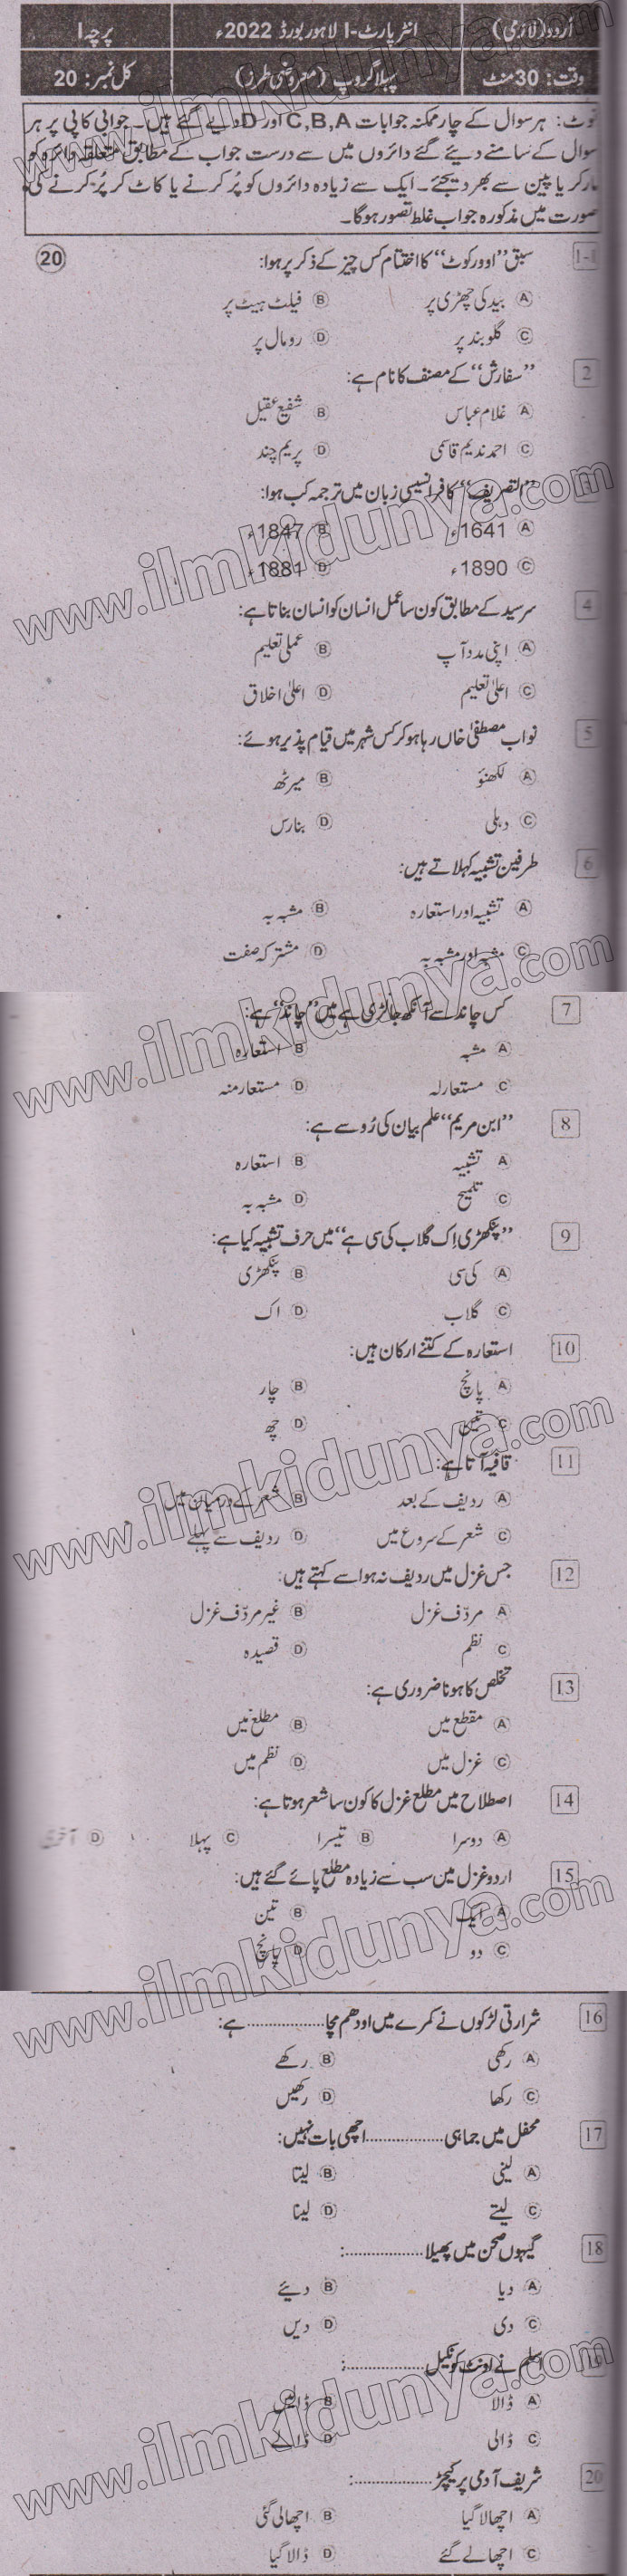 اُردو (لازمی) انٹر پارٹ-I لاہور بورڈ 2022ء پرچہ I
وقت: 30 منٹ پہلا گروپ (معروضی طرز) کل نمبر: 20
نوٹ: ہر سوال کے چار ممکنہ جوابات C,B,A اور D دیے گئے ہیں۔ جوابی کاپی پر ہر
سوال کے سامنے دیئے گئے دائروں میں سے درست جواب کے مطابق متعلقہ دائرہ کو
مارکر یا پین سے بھر دیجئے۔ ایک سے زیادہ دائروں کو پُر کرنے یا کاٹ کر پُر کرنے کی
صورت میں مذکورہ جواب غلط تصور ہوگا۔
1-1 سبق ’’اوورکوٹ‘‘ کا اختتام کس چیز کے ذکر پر ہوا: (20)
A بید کی چھڑی پر B فیلٹ ہیٹ پر
C گلوبند پر D رومال پر
2 ’’سفارش‘‘ کے مصنف کا نام ہے:
A غلام عباس B شفیع عقیل
C احمد ندیم قاسمی D پریم چند
’’التصریف‘‘ کا فرانسیسی زبان میں ترجمہ کب ہوا:
A 1641ء B 1847ء
C 1890ء D 1881ء
4 سرسید کے مطابق کون سا عمل انسان کو انسان بناتا ہے:
A اپنی مدد آپ B عملی تعلیم
C اعلیٰ تعلیم D اعلیٰ اخلاق
5 نواب مصطفیٰ خاں رہا ہو کر کس شہر میں قیام پذیر ہوئے:
A لکھنؤ B میرٹھ
C دہلی D بنارس
6 طرفین تشبیہ کہلاتے ہیں:
A تشبیہ اور استعارہ B مشبہ بہ
C مشبہ اور مشبہ بہ D مشترکہ صفت
7 کس چاند سے آنکھ جا لڑی ہے میں ’’چاند‘‘ ہے:
A مشبہ B استعارہ
C مستعارلہ D مستعارمنہ
8 ’’ابن مریم‘‘ علم بیان کی رُو سے ہے:
A تشبیہ B استعارہ
C تلمیح D مشبہ بہ
9 ’’پنکھڑی اِک گلاب کی سی ہے‘‘ میں حرف تشبیہ کیا ہے:
A کی سی B پنکھڑی
C گلاب D اک
10 استعارہ کے کتنے ارکان ہیں:
A پانچ B چار
C تین D چھ
11 قافیہ آتا ہے:
A ردیف کے بعد B شعر کے درمیان میں
C شعر کے سروع میں D ردیف سے پہلے
12 جس غزل میں ردیف نہ ہو اسے کہتے ہیں:
A مردّف غزل B غیر مردّف غزل
C نظم D قصیدہ
13 تخلص کا ہونا ضروری ہے:
A مقطع میں B مطلع میں
C غزل میں D نظم میں
14 اصطلاح میں مطلع غزل کا کون سا شعر ہوتا ہے:
A دوسرا B تیسرا C پہلا D آخری
15 اردو غزل میں سب سے زیادہ مطلع پائے گئے ہیں:
A ایک B تین
C دو D پانچ
16 شرارتی لڑکوں نے کمرے میں اودھم مچا .................. ہے:
A رکھی B رکھے
C رکھا D رکھیں
17 محفل میں جماہی .................. اچھی بات نہیں:
A لینی B لیتا
C لیتے D لینا
18 گیہوں صحن میں پھیلا ..................:
A دیا B دیئے
C دی D دیں
19 اسلم نے اونٹ کو نکیل ..................:
A ڈالا B ڈالیں
C ڈالی D ڈالے
20 شریف آدمی پر کیچڑ ..................:
A اچھالا گیا B اچھالی گئی
C اچھالے گئے D ڈالا گیا
www.ilmkidunya.com
www.ilmkidunya.com
www.ilmkidunya.com
www.ilmkidunya.com
www.ilmkidunya.com
www.ilmkidunya.com